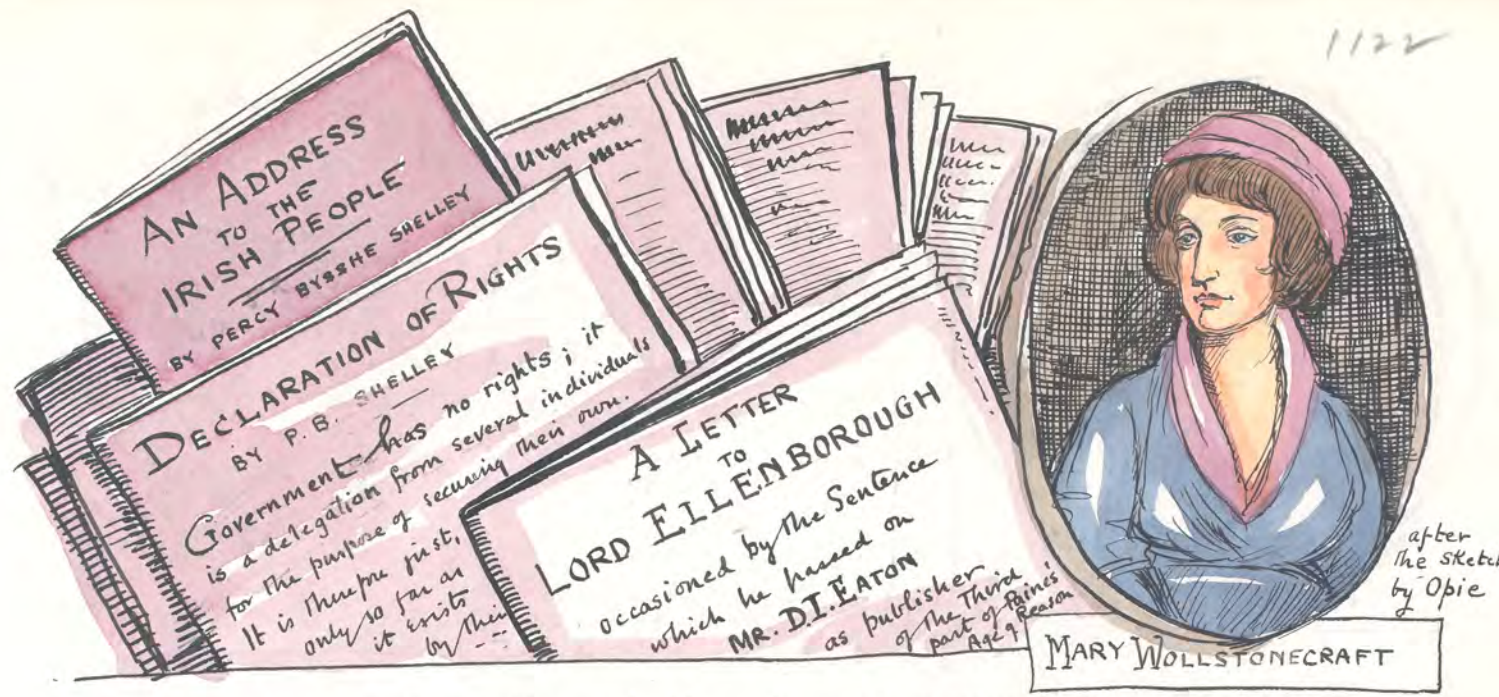 1122
AN ADDRESS
TO THE
IRISH PEOPLE
BY PERCY BYSSHE SHELLEY
DECLARATION OF RIGHTS
BY P.B. SHELLEY
Government has no rights; it
is a delegation from several individuals
for the purpose of securing their own.
It is therefore just,
only so far as
it exists
by their
A LETTER
TO
LORD ELLENBOROUGH
occasioned by the Sentence
which he passed on
MR. D.I. EATON
as publisher
of the Third
part of Paine's
Age of Reason
after
the sketch
by Opie
MARY WOLLSTONECRAFT